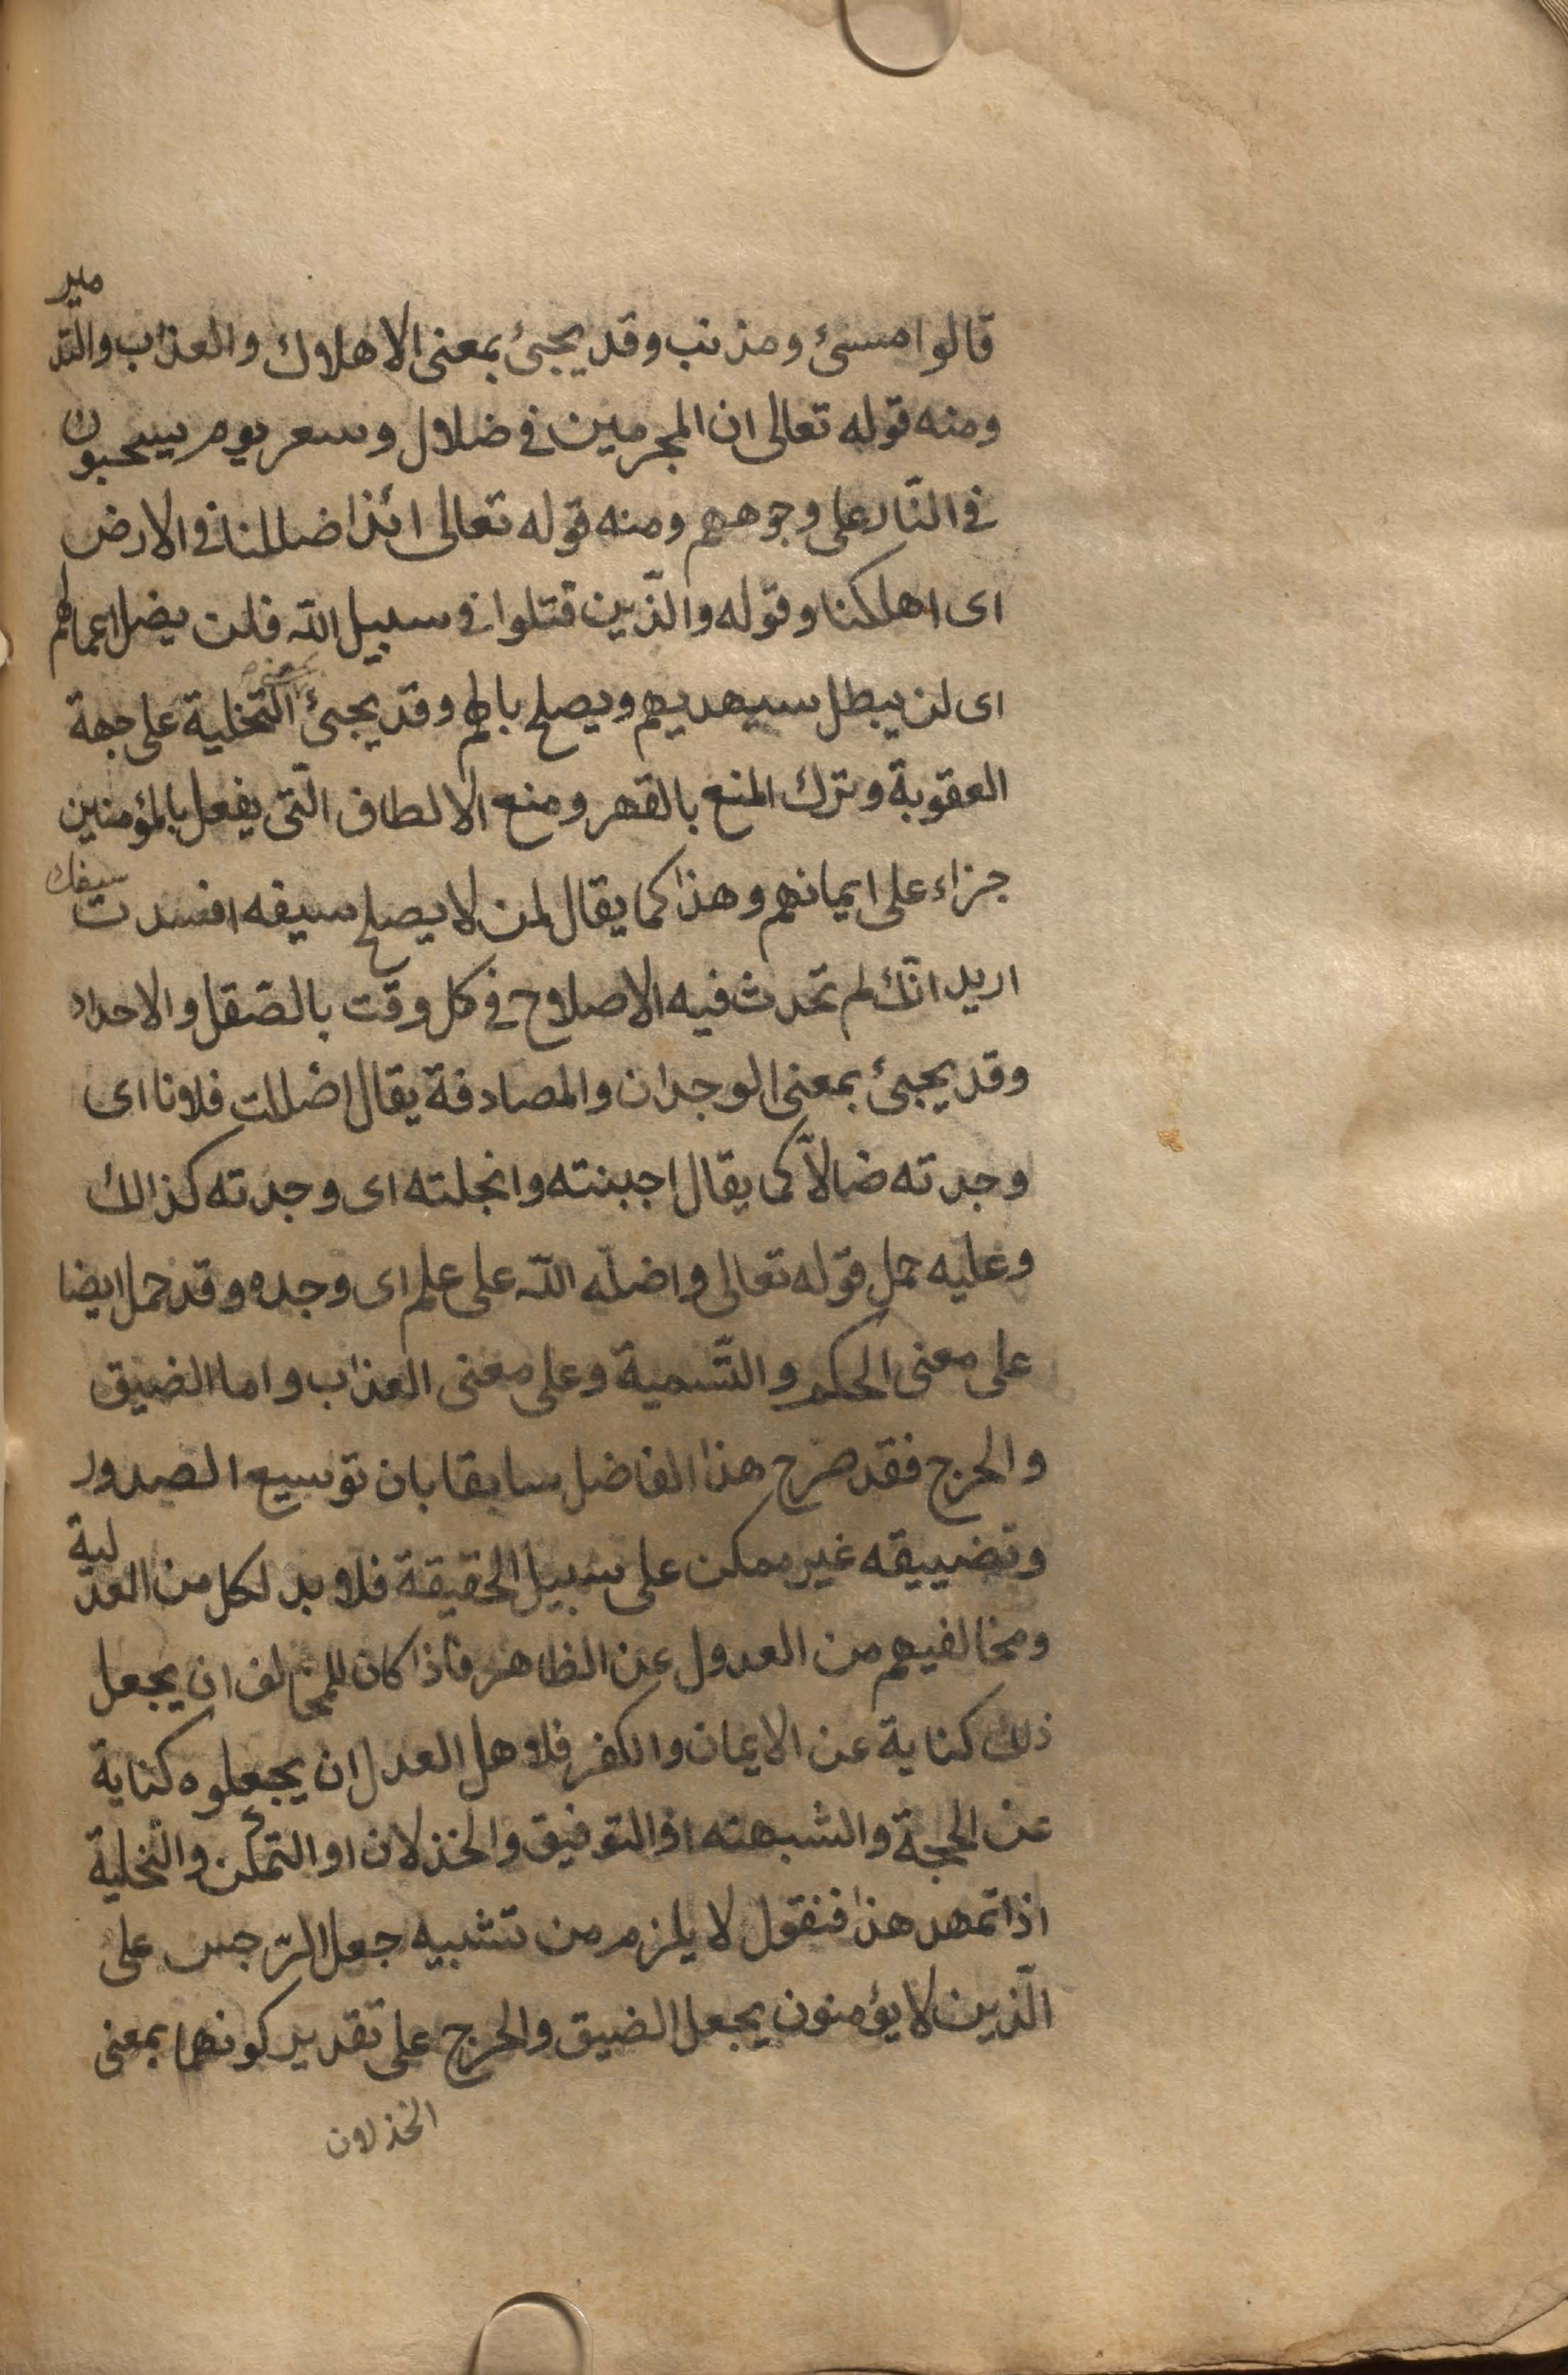 قالوا مسئ ومذنب وقد يجئ بمعنى الاهلاك والعذاب والتدمير
ومنه قوله تعالى ان المجرمين في ضلال وسعر يوم يسحبون
في النّار على وجوههم ومنه قوله تعالى ائذا ضللنا في الارض
اى اهلكنا وقوله والّذين قتلوا في سبيل الله فلن يضل اعمالهم
اى لن يبطل سيهديهم ويصلح بالهم وقد يجئ بمعنى التخلية على جهة
العقوبة وترك المنع بالقهر ومنع الالطاف الّتى يفعل بالمؤمنين
جزاء على ايمانهم وهذا كما يقال لمن لا يصلح سيفه افسدت سيفك
اريد انّك لم تحدث فيه الاصلاح في كل وقت بالصّقل والاحداد
وقد يجئ بمعنى الوجدان والمصادفة يقال اضللت فلانا اى
وجدته ضالاّ كما يقال اجبنته وانجلته اى وجدته كذالك
وعليه حمل قوله تعالى واضلّه الله على علم اى وجده وقد حمل ايضا
على معنى الحكم والتّسمية وعلى معنى العذاب واما الضيق
والحرج فقد صرح هذا الفاضل سابقا بان توسيع الصدور
وتضييقه غير ممكن على سبيل الحقيقة فلا بد لكل من العدلية
ومخالفيهم من العدول عن الظاهر فاذا كان للمخالف ان يجعل
ذلك كناية عن الايمان والكفر فلاهل العدل ان يجعلوه كناية
عن الحجة والشبهته او التوفيق والخذلان او التمكن والتخلية
اذا تمهد هذا فنقول لا يلزم من تشبيه جعل الرّجس على
الّذين لا يؤمنون يجعل الضيق والحرج على تقدير كونهما بمعنى
الخذلان